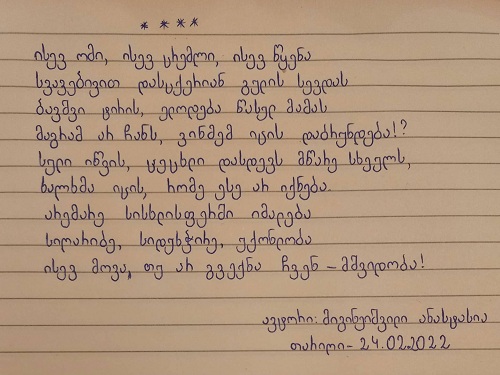 * * * *
ისევ ომი, ისევ ცრემლი, ისევ წყენა
სვავებივით დასცქერიან გულის სევდას
ბავშვი ტირის, ელოდება წასულ მამას
მაგრამ არ ჩანს, ვინმემ იცის დაბრუნდება!?
სული იწვის, ცეცხლი დასდევს მწარე სხეულს,
ხალხმა იცის, რომე ესე არ იქნება.
არემარე სისხლისფერში იმალება
სიღარიბე, სიდუხჭირე, უქონლობა
ისევ მოვა, თუ არ გვექნა ჩვენ – მშვიდობა!
ავტორი: მიგინეიშვილი ანასტასია
თარიღი – 24.02.2022